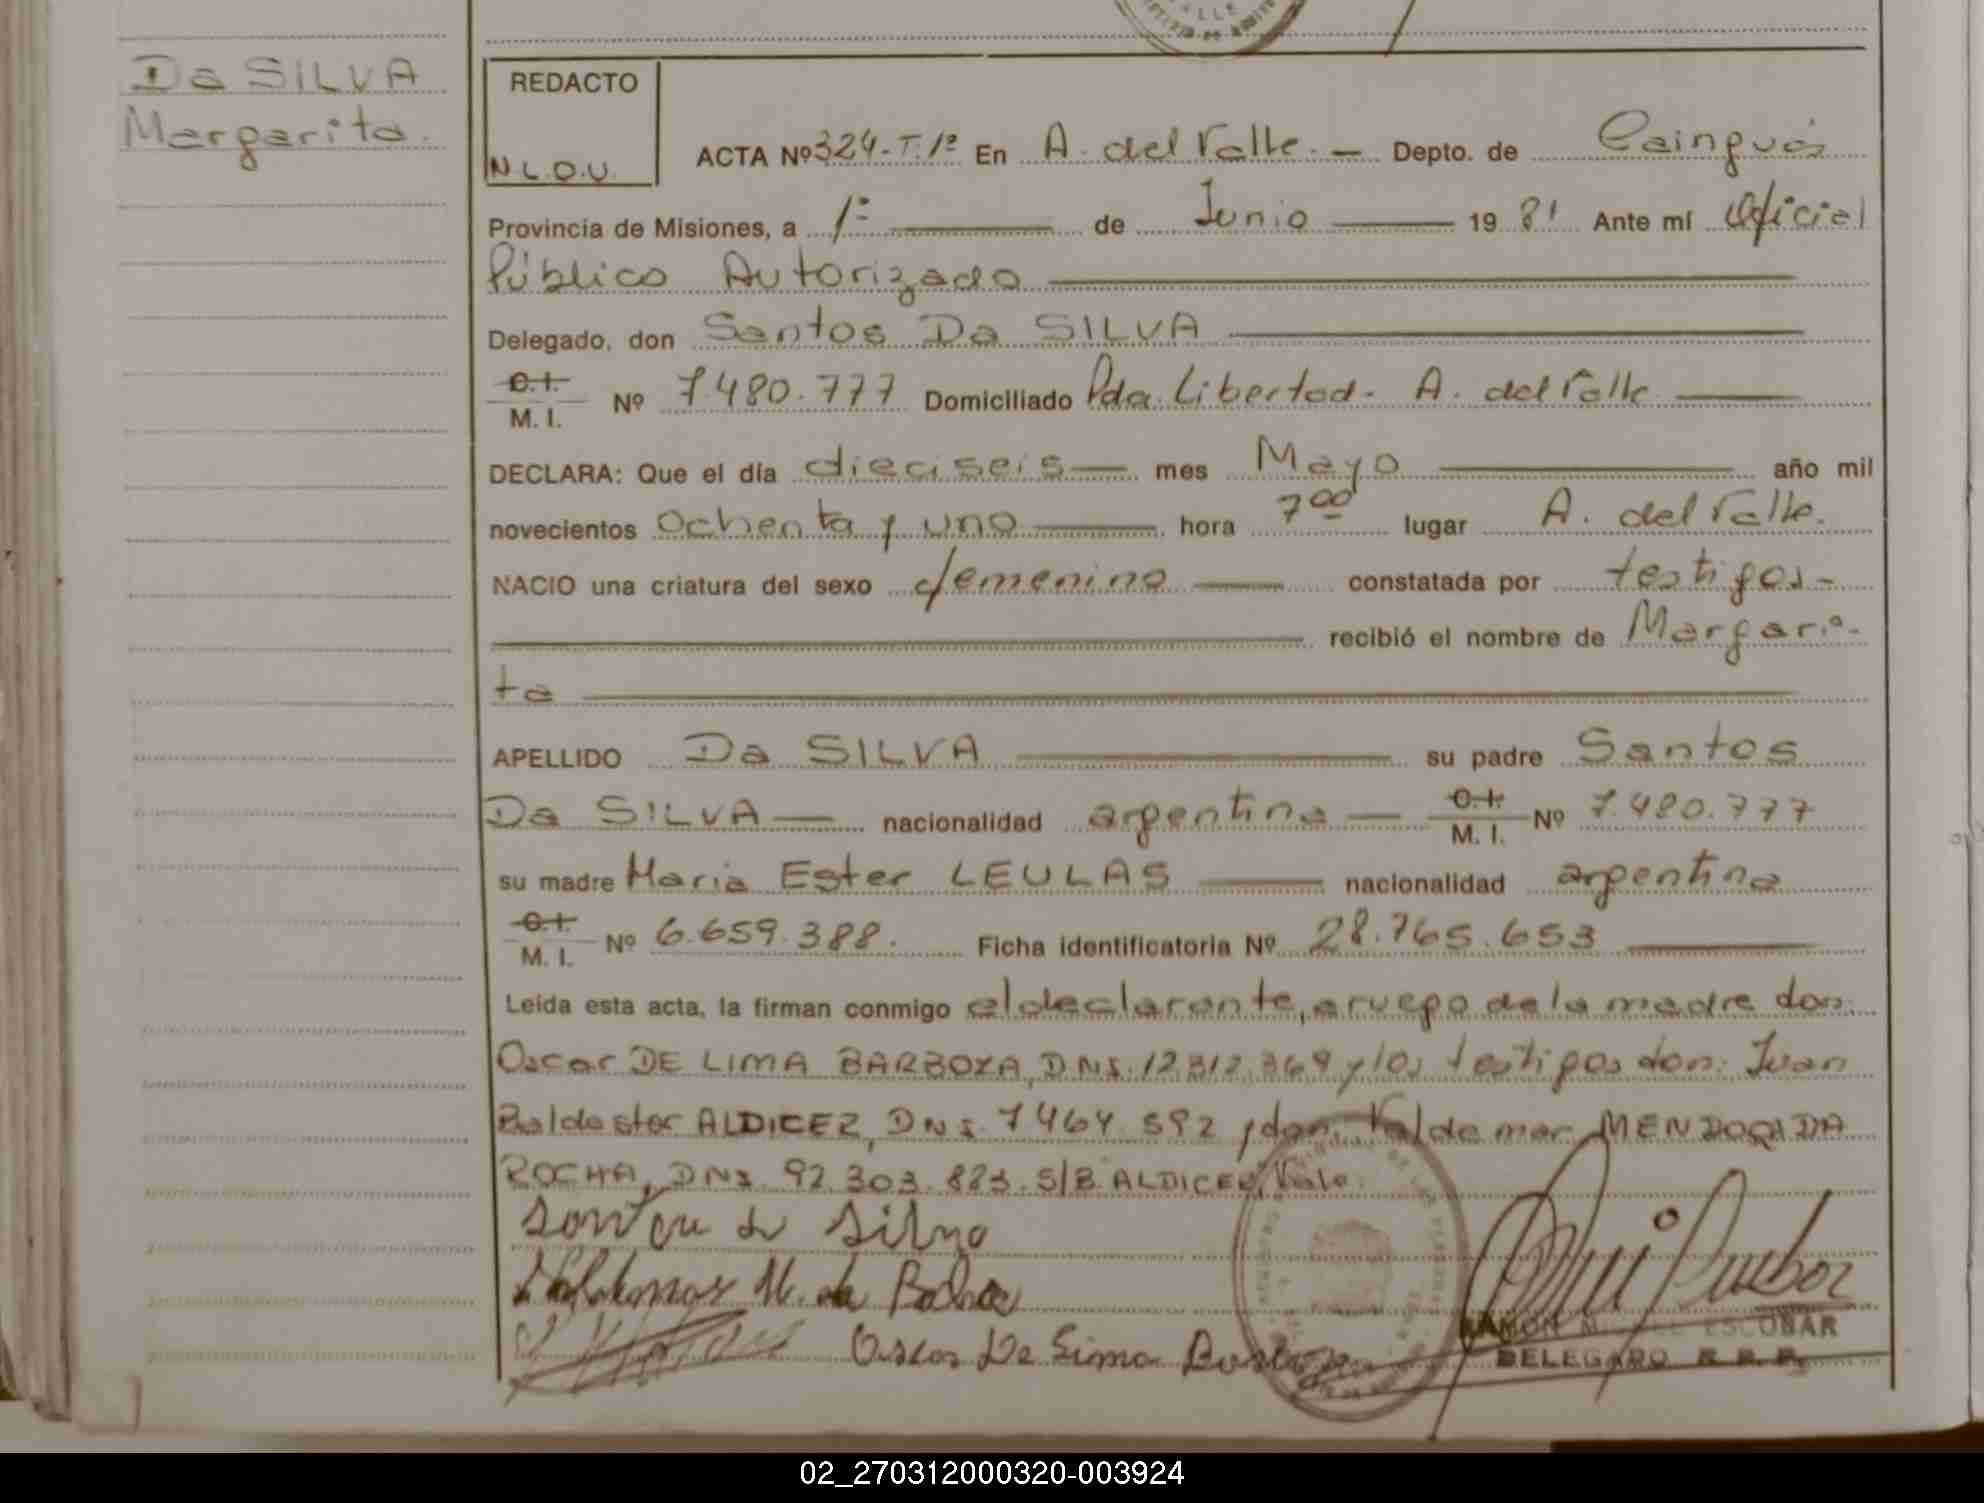 Da SILVA
Margarita.
REDACTO
N.L.O.U.
ACTA Nº 324-T.1º En A. del Valle. — Depto. de Cainguás
Provincia de Misiones, a 1º de Junio 19 81 Ante mí Oficial
Público Autorizado
Delegado, don Santos Da SILVA
C.I. / M.I. Nº 7.480.777 Domiciliado Pda. Libertad - A. del Valle
DECLARA: Que el día dieciseis mes Mayo año mil
novecientos ochenta y uno hora 7 00 lugar A. del Valle.
NACIO una criatura del sexo femenino constatada por testigos-
recibió el nombre de Margari-
ta
APELLIDO Da SILVA su padre Santos
Da SILVA nacionalidad argentina C.I. / M.I. Nº 7.480.777
su madre Maria Ester LEULAS nacionalidad argentina
C.I. / M.I. Nº 6.659.388. Ficha identificatoria Nº 28.765.653
Leída esta acta, la firman conmigo el declarante, a ruego de la madre don:
Oscar DE LIMA BARBOZA, DNI. 12.812.369 y los testigos don: Juan
ALDICER, DNI. 7464.592 y don. Valdemar MENDOQI DA
ROCHA, DNI. 92.303.823. S/B. ALDICER, Vale.
Oscar De Lima
RAMON MIGUEL ESCOBAR
DELEGADO R.P.P.
02_270312000320-003924